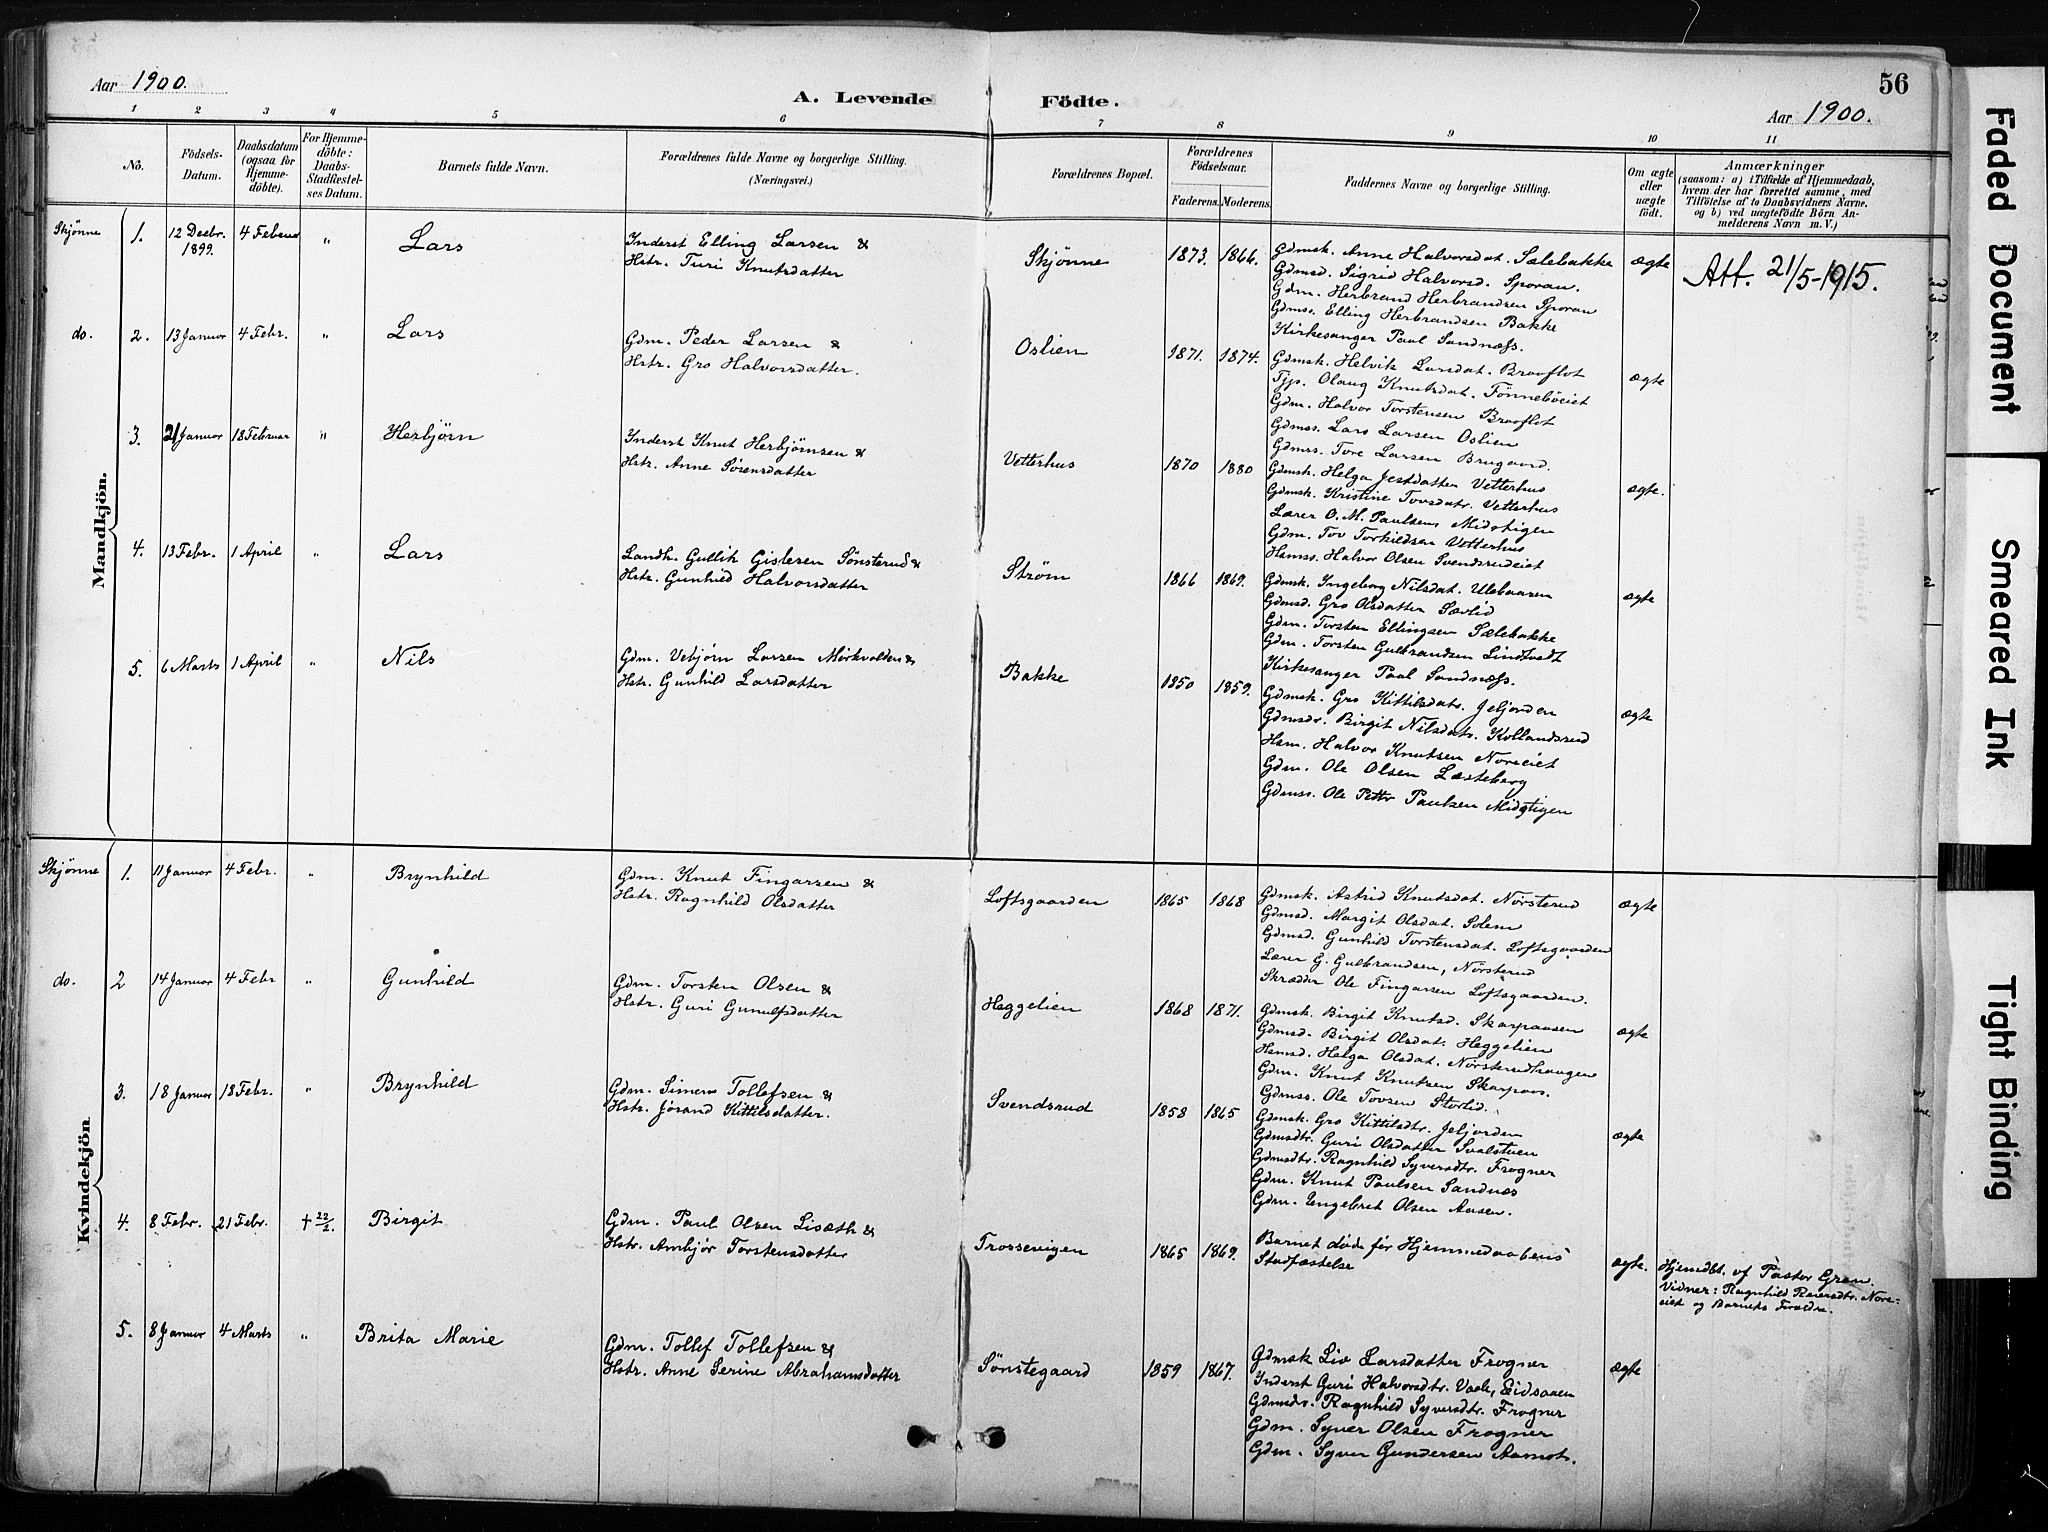 56
Aar 1900.
A. Levende Födte.
Aar 1900.
1 2 3 4 5 6 7 8 9 10 11
No.
Födsels-Datum.
Daabsdatum (ogsaa for Hjemmedöbte).
For Hjemmedöbte: Daabs-Stadfæstelses Datum.
Barnets fulde Navn.
Forældrenes fulde Navne og borgerlige Stilling. (Næringsvei.)
Forældrenes Bopæl.
Forældrenes Födselsaar.
Faderens. Moderens.
Faddernes Navne og borgerlige Stilling.
Om ægte eller uægte födt.
Anmærkninger
(saasom: a) i Tilfælde af Hjemmedaab, hvem der har forrettet samme, med Tilföielse af to Daabsvidners Navne. og b) ved uægtefödte Börn Anmelderens Navn m. V.)
Mandkjön.
Skjønne 1. 12 Decbr. 1899. 4 Februar " Lars
Inderst Elling Larsen &
Hstr. Turi Knutsdatter
Skjønne 1873. 1866.
Gdmsk. Anne Halvorsdat. Sælebakke
Gdmsd. Sigrid Halvorsd. Sporan.
Gdm. Herbrand Herbrandsen Sporan
Gdmss. Elling Herbrandsen Bakke
Kirkesanger Paul Sandnæss.
ægte
Att. 21/5-1915.
do. 2. 13 Januar 4 Febr. " Lars
Gdm. Peder Larsen &
Hstr. Gro Halvorsdatter.
Oslien 1871. 1874.
Gdmsk. Helvik Larsdat. Braaflot
Tjp. Olaug Knutsdat. Fønnebøeiet
Gdm. Halvor Torstensen Braaflot
Gdmss. Lars Larsen Oslien
Gdmss. Tore Larsen Brugaard.
ægte
3. 21 Januar 18 Februar " Herbjørn
Inderst Knut Herbjørnsen &
Hstr. Anne Sørensdatter
Vetterhus 1870 1880
Gdmsk. Helga Jestdatter Vetterhus
Gdmsk. Kristine Tovsdatr. Vetterhus
Lærer O. M. Paulsen, Midstigen
Gdm. Tov Torkildsen Vetterhus
Hsmss. Halvor Olsen Svendsrudeiet
ægte.
4. 13 Febr. 1 April " Lars
Landh. Gullik Gislesen Sønsterud &
Hstr. Gunhild Halvorsdatter
Strøm 1866 1869.
Gdmsk. Ingeborg Nilsdat. Ulebaasen
Gdmsd. Gro Olsdatter Sævlid
Gdm. Torsten Ellingsen Sælebakke
Gdm. Torsten Gulbrandsen Lindtvedt
Kirkesanger Paal Sandnæss.
ægte
5. 6 Marts 1 April " Nils
Gdm. Vebjørn Larsen Mørkvolden &
Hstr. Gunhild Larsdatter
Bakke 1850 1859.
Gdmsk. Gro Kittilsdatr. Jeljorden
Gdmsdr. Birgit Nilsdatr. Kollandsrud
Hsm. Halvor Knutsen Noreeiet
Gdm. Ole Olsen Læsteberg
Gdmss. Ole Petter Paulsen Midstigen
ægte
Kvindekjön
Skjønne 1. 11 Januar 4 Febr. " Brynhild
Gdm. Knut Fingarsen &
Hstr. Ragnhild Olsdatter
Loftsgaarden 1865 1868
Gdmsk. Astrid Knutsdat. Nørsterud
Gdmsd. Margit Olsdat. Solem
Gdmsd. Gunhild Torstensdat. Loftsgaarden
Lærer G. Gulbrandsen, Nørsterud
Skrædder Ole Fingarsen Loftsgaarden.
ægte
do. 2 14 Januar 4 Febr " Gunhild
Gdm. Torsten Olsen &
Hstr. Guri Gunulfsdatter
Heggelien 1868 1871.
Gdmsk. Birgit Knutsd. Skarpaasen
Gdmsd. Birgit Olsdat. Heggelien
Hsmsd. Helga Olsdat. Nørsterudhaugen
Gdm. Knut Knutsen Skarpaas.
Gdmss. Ole Tovsen Storlid.
ægte
3. 18 Januar 18 Febr. " Brynhild
Gdm. Simen Tollefsen &
Hstr. Jørand Kittilsdatter.
Svendsrud 1858 1865
Gdmsk. Gro Kittilsdtr. Jeljorden
Gdmsdtr. Guri Olsdatter Svalstuen
Gdmsdtr. Ragnhild Syversdtr. Frogner
Gdm. Knut Paulsen Sandnæs
Gdm. Engebret Olsen Aasen.
ægte
4. 8 Febr. 21 Febr. † 22/2. Birgit
Gdm. Paul Olsen Lisæth &
Hstr. Ambjør Torstensdatter
Trossevigen 1865 1869.
Barnet døde før Hjemmedaabens
Stadfæstelse
ægte.
Hjemdbt. af Pastor Gran.
Vidner: Ragnhild Reiersdtr. Nore-
eiet og Barnets Forældre.
5. 8 Januar 4 Marts " Brita Marie
Gdm. Tollef Tollefsen &
Hstr. Anne Serine Abrahamsdatter
Sønstegaard 1859 1867.
Gdmsk Liv Larsdatter Frogner
Inderst Guri Halvorsdtr. Vaale, Eidsaaen
Gdmsdr. Ragnhild Syversdtr. Frogner
Gdm. Syver Olsen Frogner
Gdm. Syver Gundersen Aamot.
ægte
Faded Document
Smeared Ink
Tight Binding